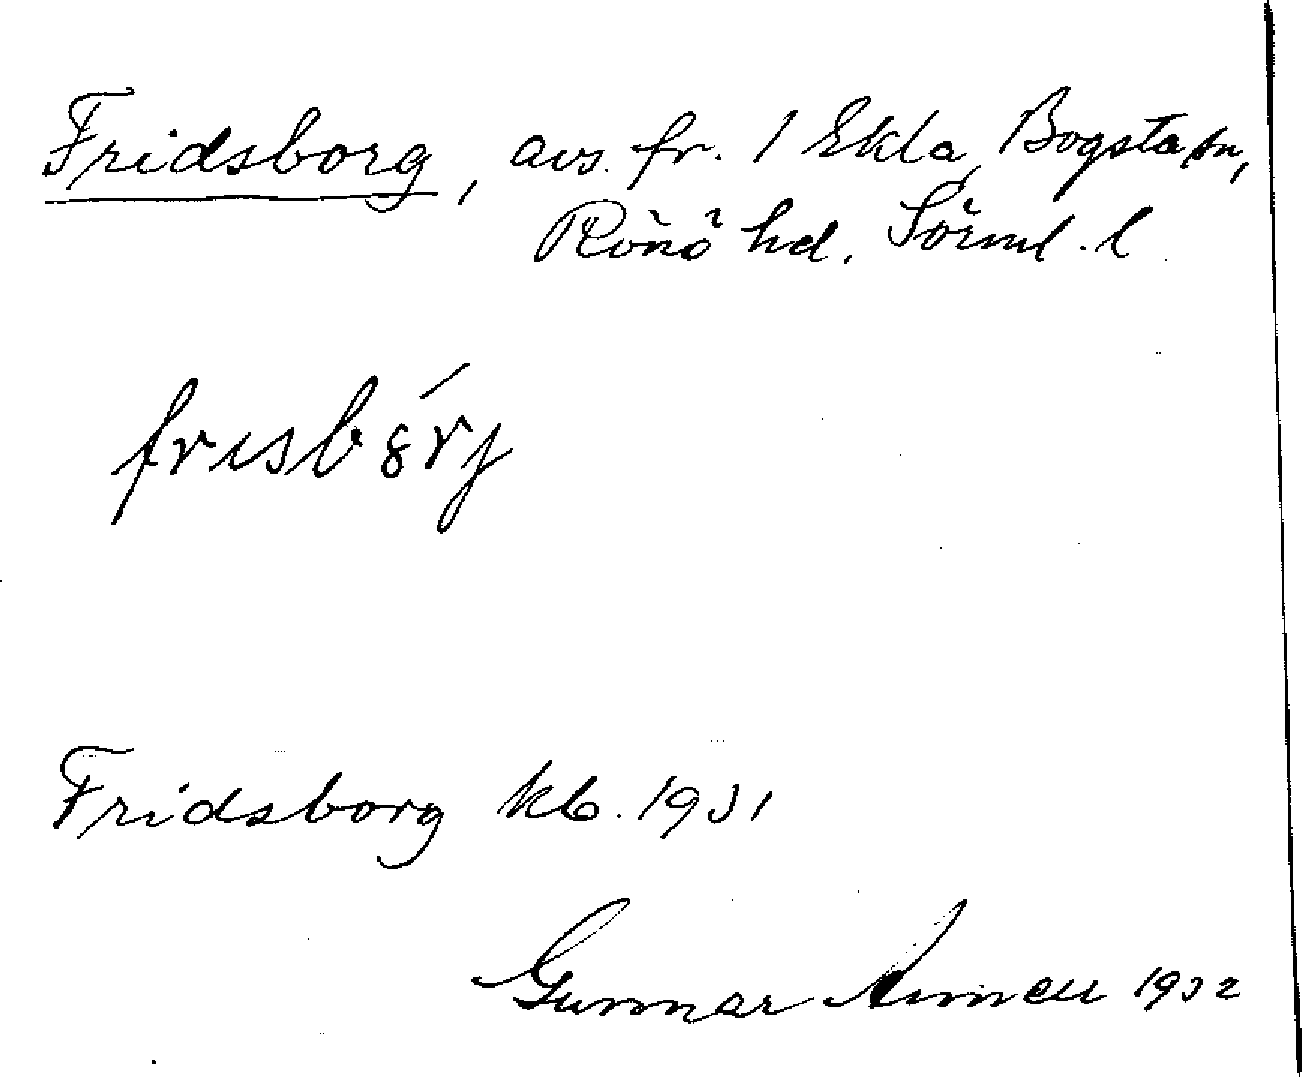 Fridsborg, avs. fr. 1 Ekla, Bogsta sn,
Rönö hd. Söml. l.
frisb8́rj
Fridsborg kb. 1931
Gunnar 1932